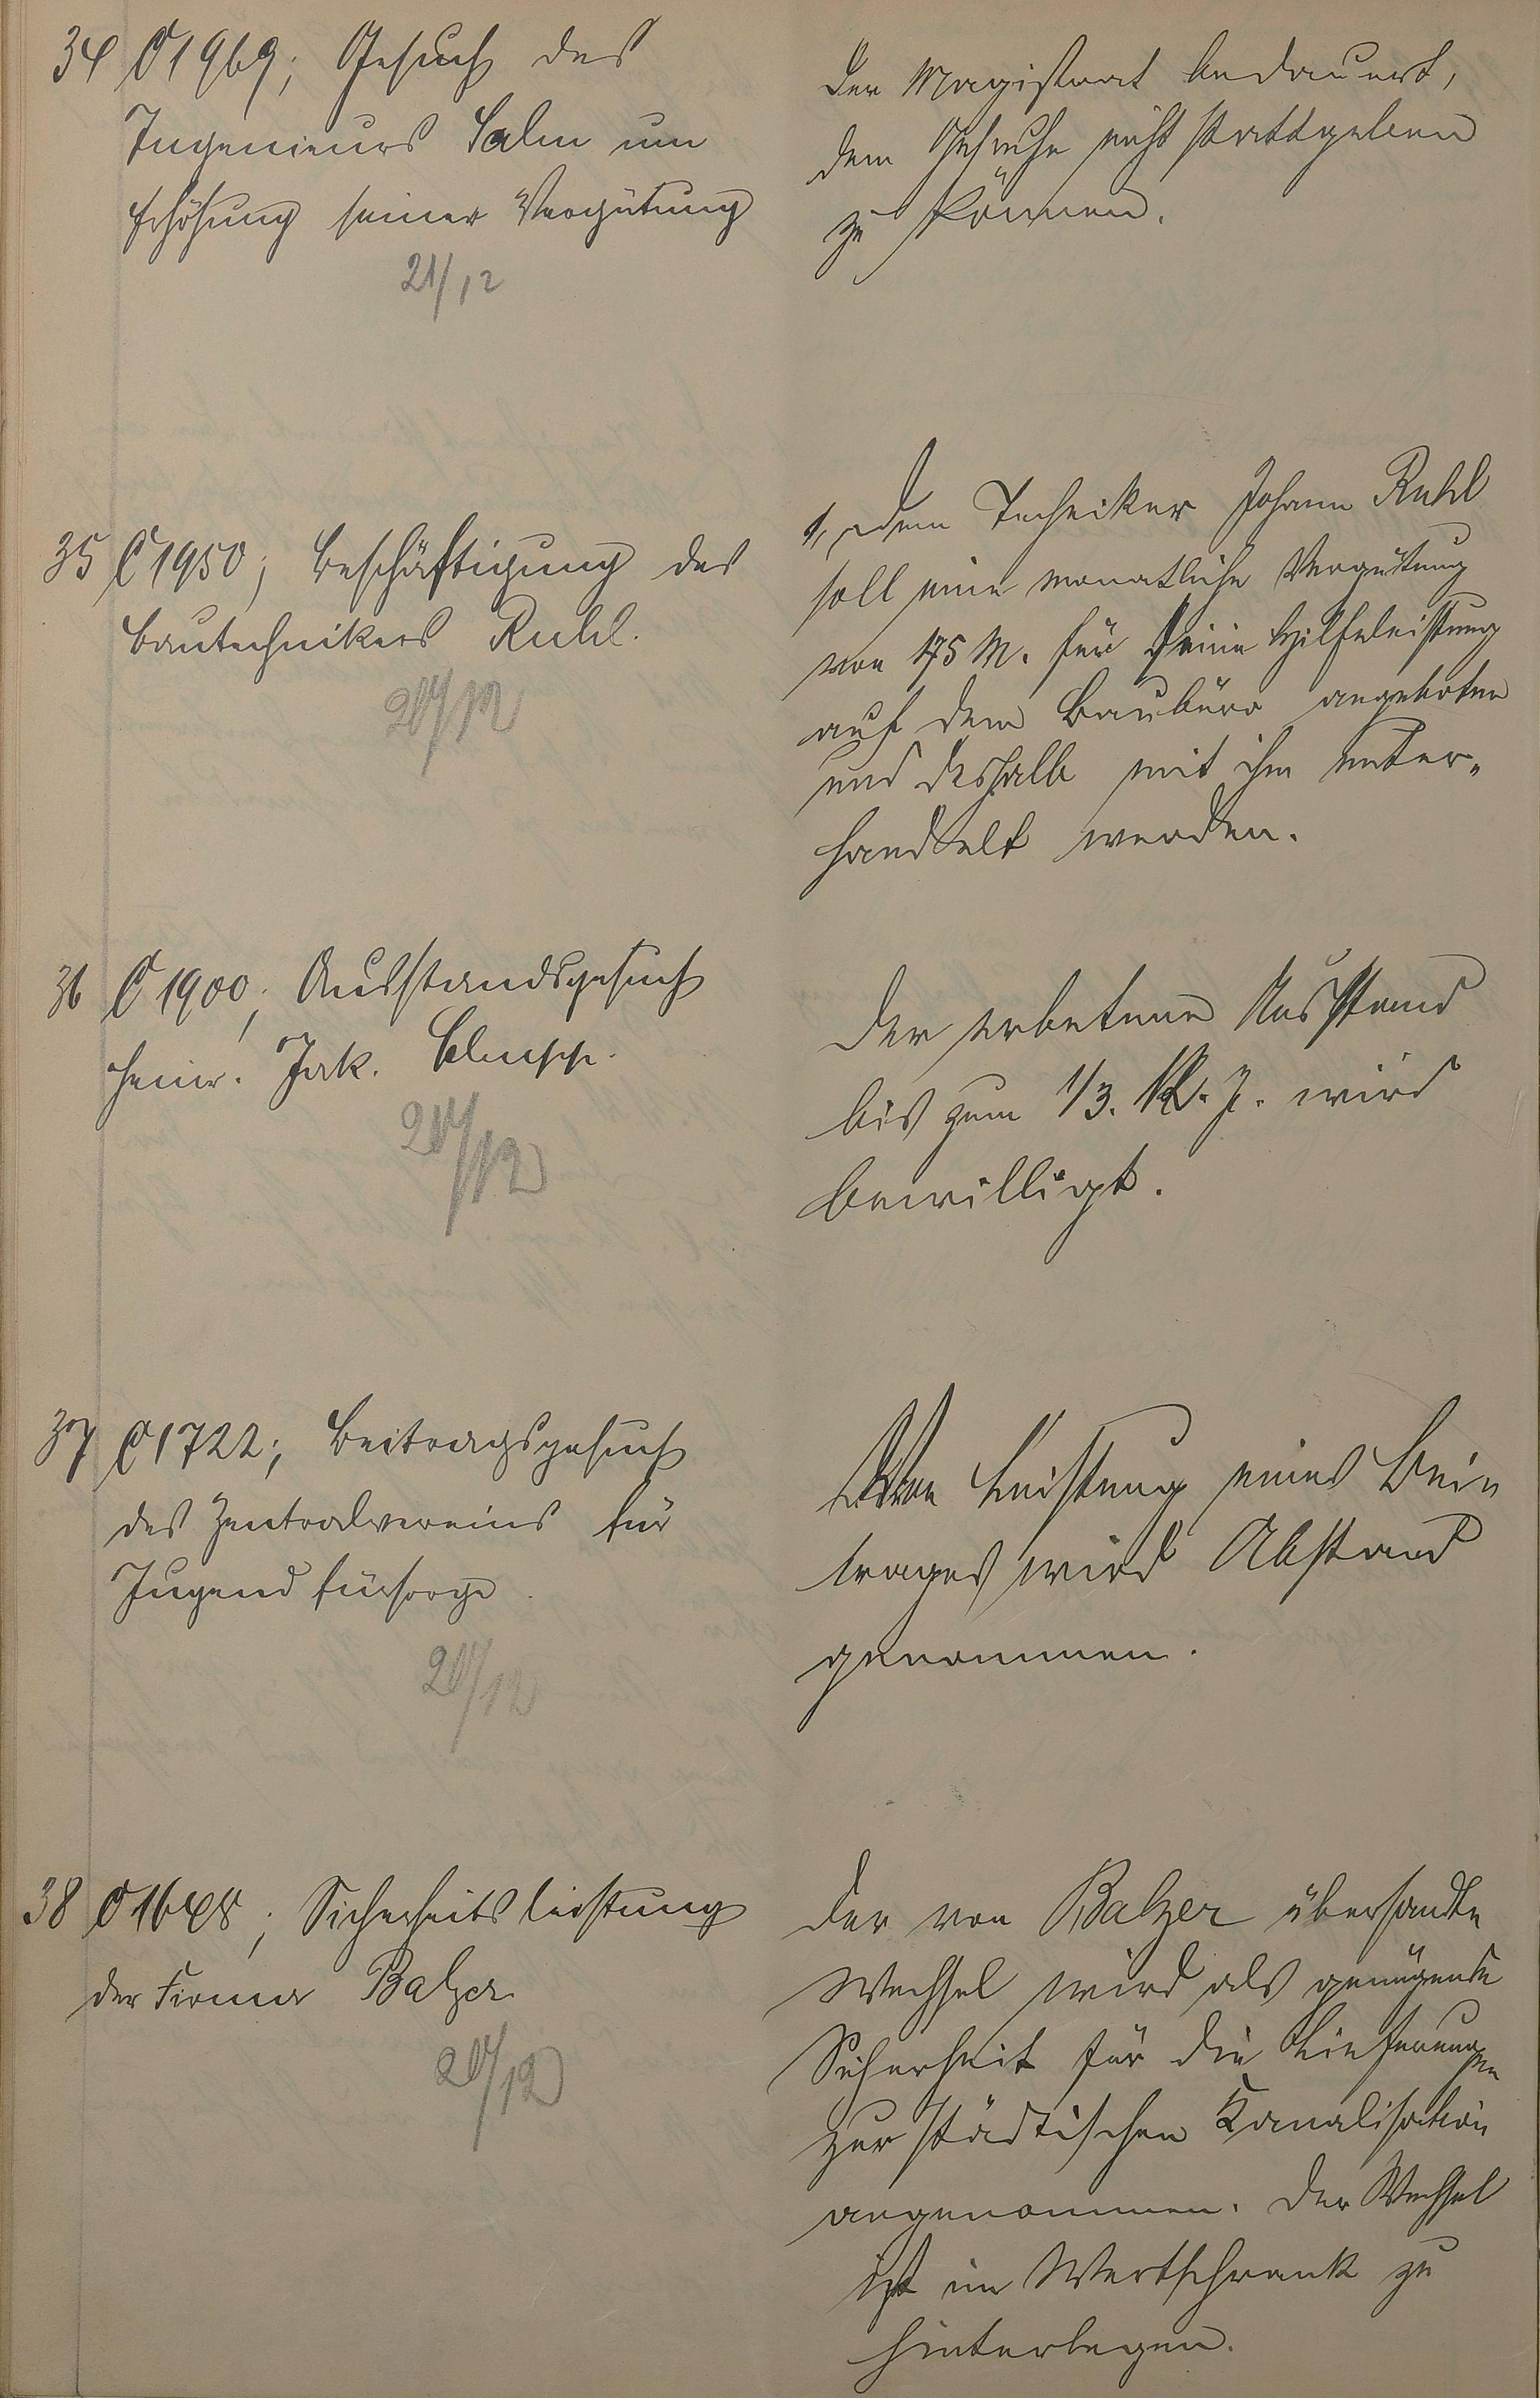 34 C 1969; Gesuch des
Ingenieurs Salm um
Erhöhung seiner Vergütung
21/12
Der Magistrat bedauert,
dem Gesuche nicht stattgeben
zu können.
35 C 1950; Beschäftigung des
Bautechnikers Ruhl.
20/12
1, Dem Techniker Johann Ruhl
soll eine monatliche Vergütung
von 175 M. für seine Hilfeleistung
auf dem Baubüro angeboten
und deshalb mit ihm unter-
handelt werden.
36 C 1900; Ausstandsgesuch
Heinr. Jak.
20/12
Der erbetene Ausstand
bis zum 1/3. J. wird
bewilligt.
37 C 1722; Beitragsgesuch
des Zentralvereins für
Jugendfürsorge.
20/12
Von Leistung eines Bei-
trages wird Abstand
genommen.
38 C 1648; Sicherheitsleistung
der Firma Balzer
20/12
Der von Balzer übersandte
Wechsel wird als genügende
Sicherheit für die Lieferungen
zur städtischen Kanalisation
angenommen. Der Wechsel
ist im Wertschrank zu
hinterlegen.